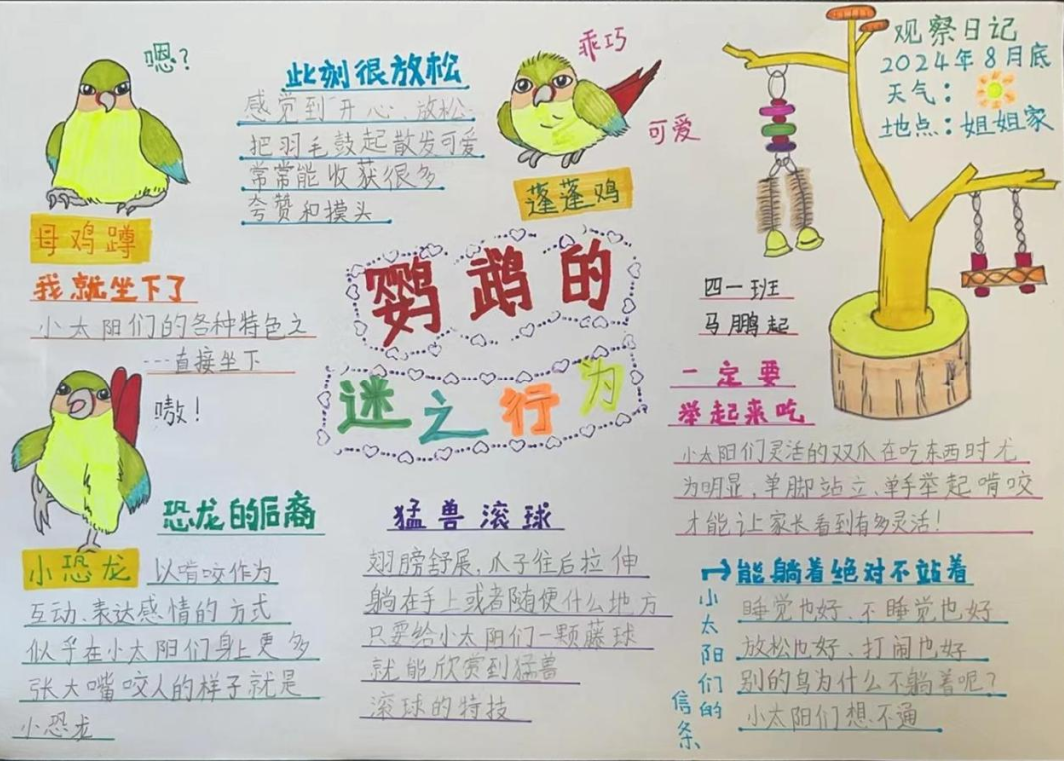 嗯?
母鸡蹲
我就坐下了
小太阳们的各种特色之
---直接坐下
此刻很放松
感觉到开心、放松
把羽毛鼓起散发可爱
常常能收获很多
夸赞和摸头
乖巧
可爱
蓬蓬鸡
观察日记
2024年8月底
天气:
地点:姐姐家
鹦鹉的
迷之行为
四一班
马鹏起
嗷!
小恐龙
恐龙的后裔
以啃咬作为
互动、表达感情的方式
似乎在小太阳们身上更多
张大嘴咬人的样子就是
小恐龙
猛兽滚球
翅膀舒展,爪子往后拉伸
躺在手上或者随便什么地方
只要给小太阳们一颗藤球
就能欣赏到猛兽
滚球的特技
一定要
举起来吃
小太阳们灵活的双爪在吃东西时尤
为明显,单脚站立、单手举起啃咬
才能让家长看到有多灵活!
能躺着绝对不站着
小太阳们的
信条
睡觉也好、不睡觉也好
放松也好、打闹也好
别的鸟为什么不躺着呢?
小太阳们想不通